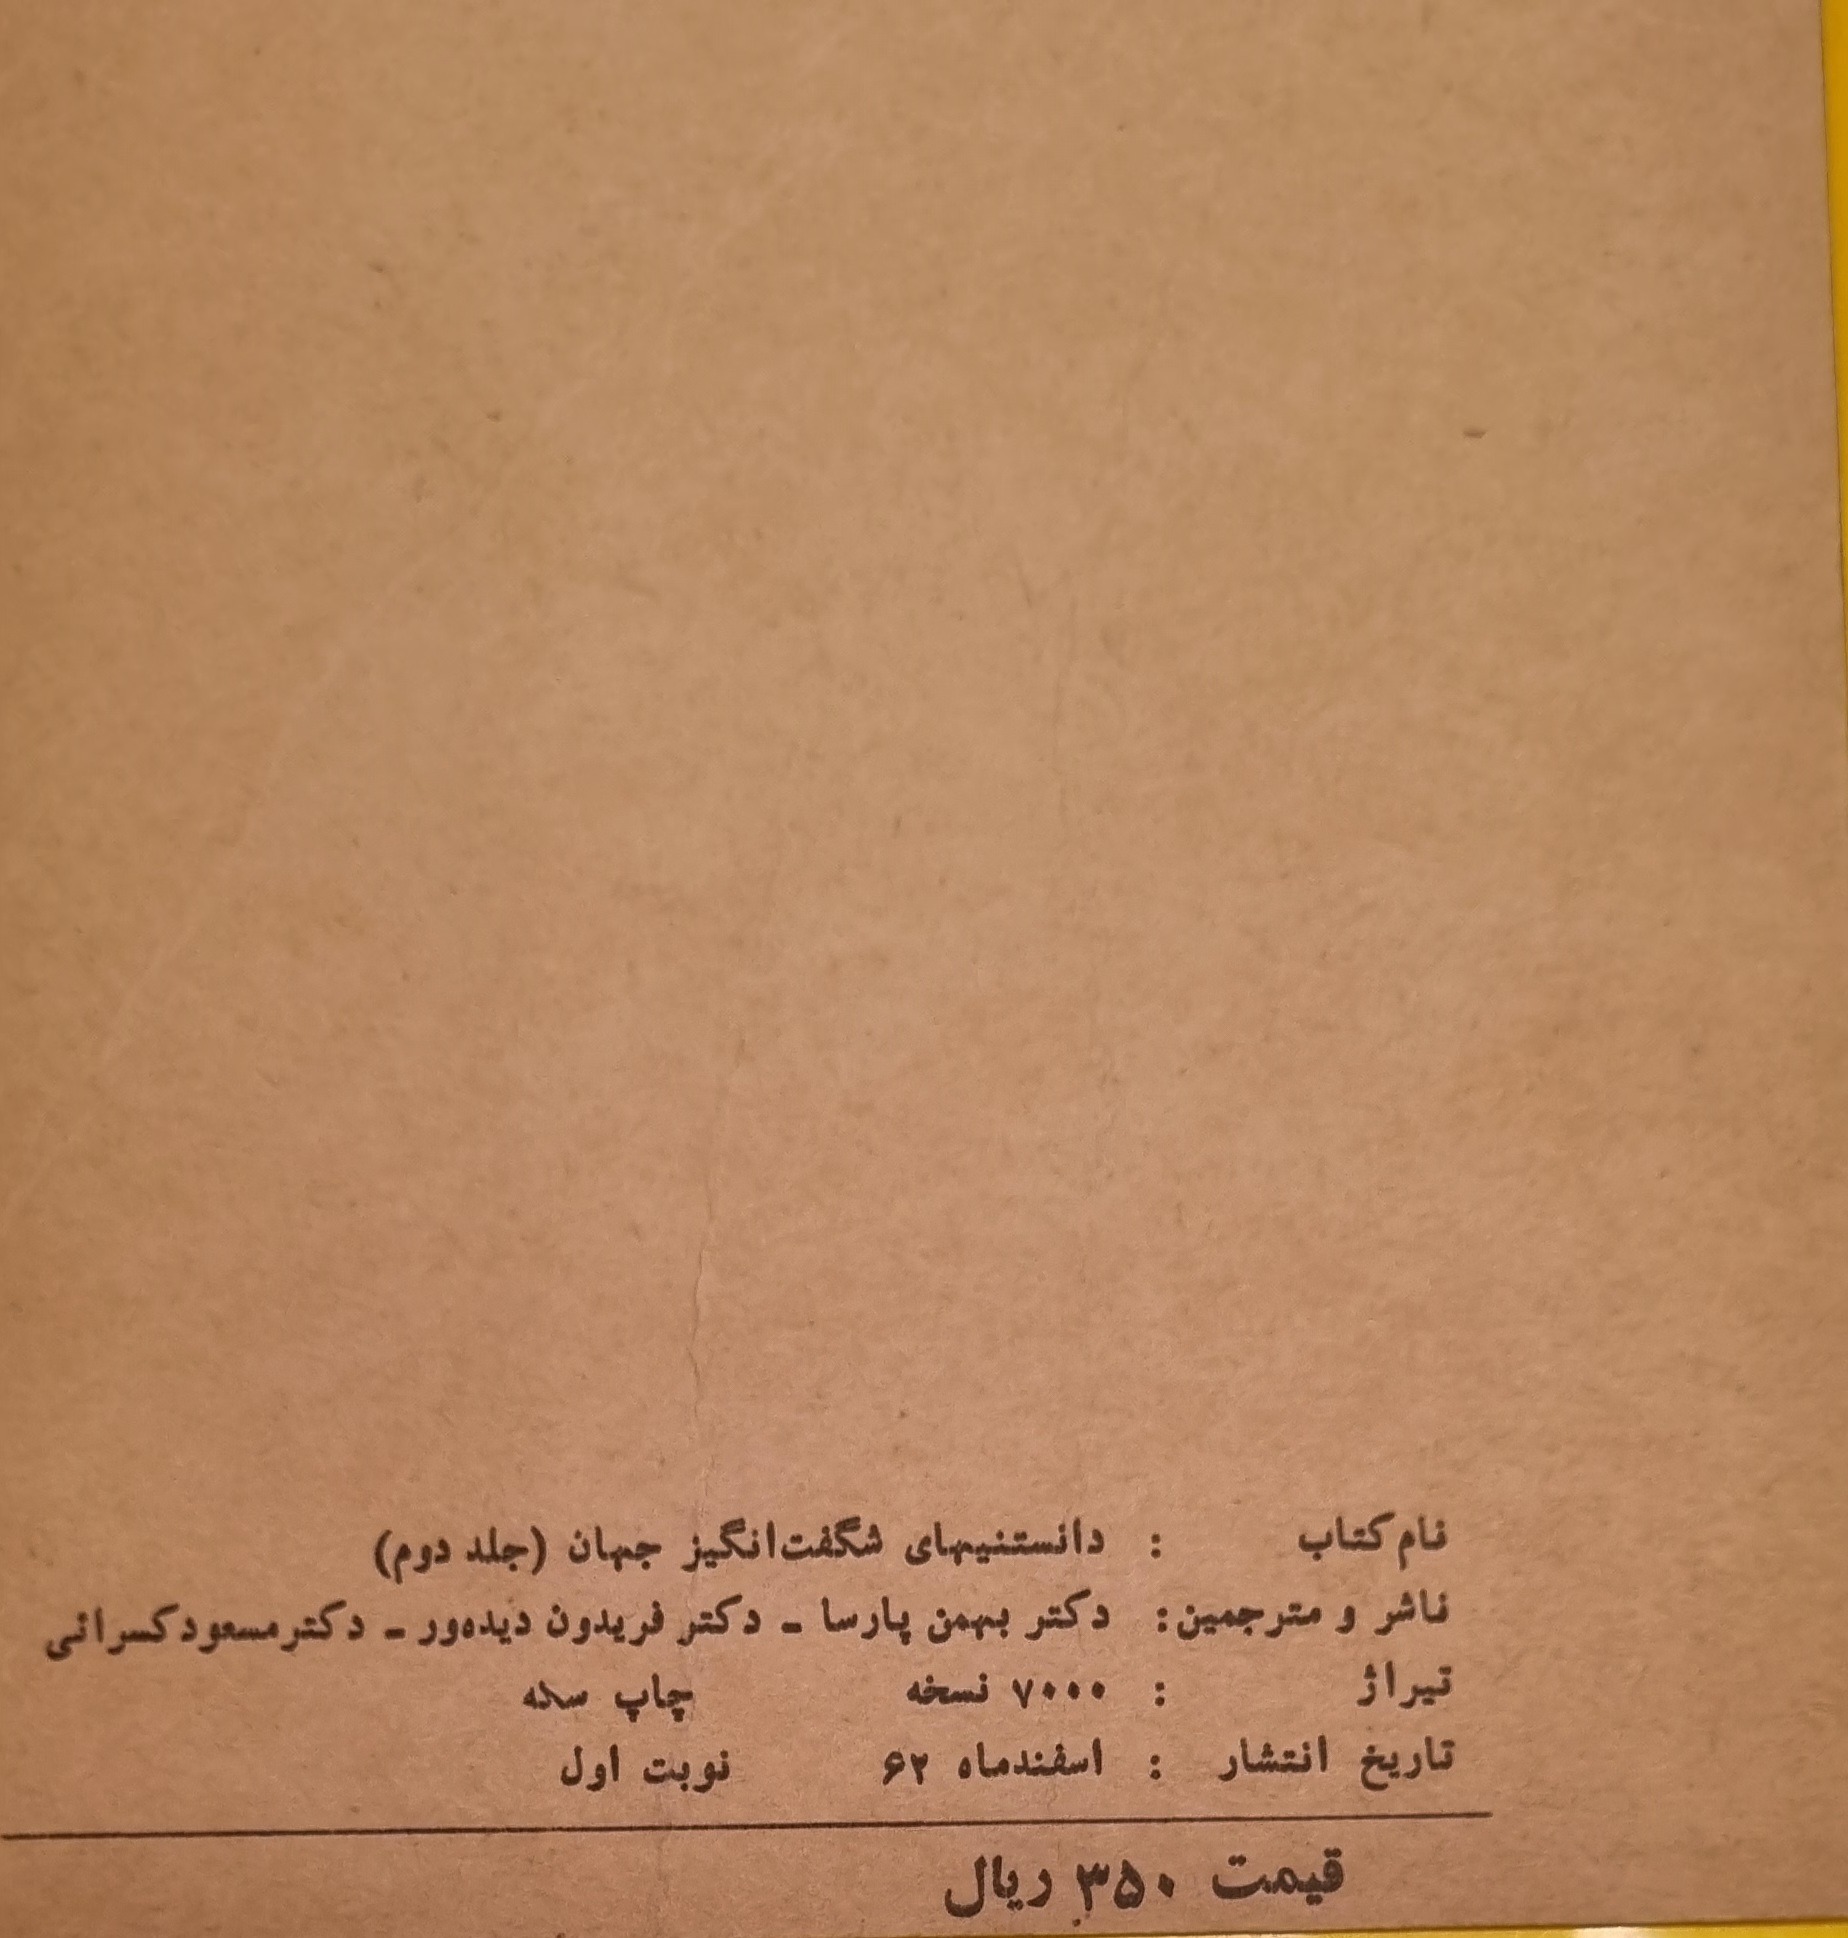 نام کتاب : دانستنیهای شگفت‌انگیز جهان (جلد دوم)
ناشر و مترجمین: دکتر بهمن پارسا ـ دکتر فریدون دیده‌ور ـ دکتر مسعود کسرائی
تیراژ : ۷۰۰۰ نسخه چاپ سکه
تاریخ انتشار : اسفندماه ۶۲ نوبت اول
قیمت ۳۵۰ ریال